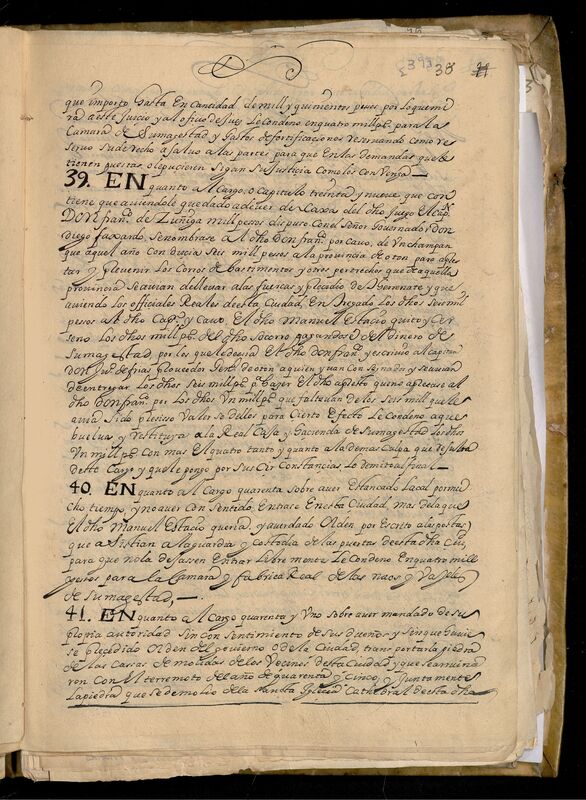 38
que importo hasta En cantidad de mill y quinientos pesos por lo que mi
ra a este Juicio y al oficio de Juez Le Condeno en quatro mill ps. para la
Camara de Sumagestad, y Gastos de fortificaciones reseruando como re
seruo su derecho a saluo a las partes para que En las demandas que le
tienen puestas, o le pucieren Sigan su Justicia Como les Conuenga —
39. EN quanto Al Cargo, o Capitulo treinta y nueue que con
tiene que auiendole quedado a deuer de el dho Juego El Capn.
DON Franco. de Zuñiga mill pesos dispuso Con el Señor Gouernador Don
Diego faxardo Se nombrase Al dho Don franco. por Cauo, de Vn champan
que aquel año Con ducia Seis mill pesos a la prouincia de oton para
tar y preuenir Los Corros de bastimentos y otros pertrechos que de aquella
prouincia Se auian de lleuar a las fuercas y presidio de Therrenate y que
auiendo Los officiales Reales de esta Ciudad, En tregado Los dhos Seis mill
pesos Al dho Capn. y Cauo, El dho Manuel Estacio quito y Cer
seno Los dhos mill ps. del dho Socorro pagandose del dinero de
Sumagestad, por los que le deuia El dho Don franco. y escriuio al Capitan
Don Juo. de frias proueedor Genl. de oton a quien yuan Con Signados y Se auian
de entregar Los dhos Seis mill ps. que
dho Don franco. por Los dhos Vn mill ps. que faltauan de los Seis mill que
auia Sido preciso Valerse dellos para Cierto Efecto Le Condeno a que
buelua y restituya a la Real Caxa y Hacienda de Sumagestad Los dhos
Vn mill ps. Con mas El quatro tanto y quanto a la demas Culpa que
deste Cargo y que le pongo por Sus Cir Constancias Lo demito al final —
40. EN quanto Al Cargo quarenta sobre auer Estancado Lacal por mu
cho tiempo, y no auer Con Sentido Entrase En esta Ciudad, mas de la que
El dho Manuel Estacio queria, y auer dado Orden por Escrito a las postas
que a Sistian a la guardia y Custodia de las puertas desta dha Ciud.
para que no la dejassen Entrar Libre mente Le Condeno En quatro mill
pesos para la Camara y fabrica Real de las naos y
de Sumagestad, —
41. EN quanto Al Cargo quarenta y Vno sobre auer mandado de su
propia autoridad Sin con Sentimiento de sus dueños y Sin que huuie
se precedido Orden del gouierno O de la Ciudad, trans portar la piedra
de las Cassas demolidas de los Vecinos desta Ciudad y que se arruina
ron Con El terremoto del año de quarenta y Cinco, y Junta mente
La piedra que se demolio de la Santa Iglecia Cathedral de esta dha